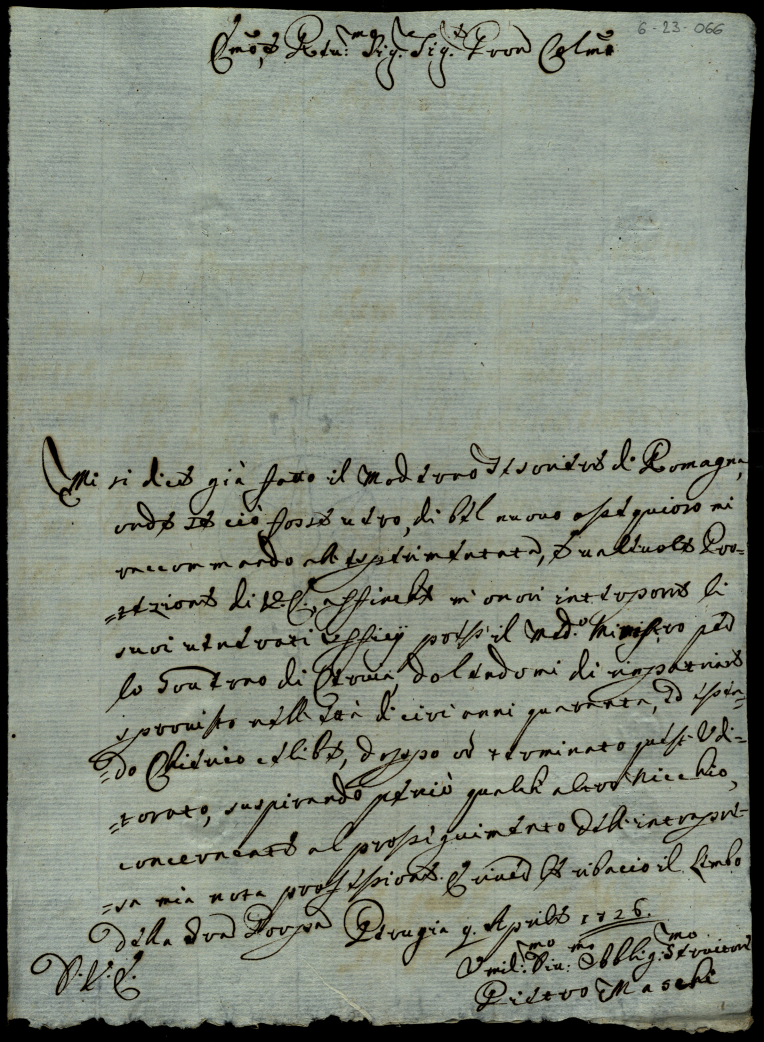 6-23-066
Emō, e Rev:mo Sig.re Sig.re Pron Colmo
Mi si dice già fatto il moderno Tesoriere di Romagna,
onde se ciò fosse vero, di bel nuovo ossequioso mi
raccommando all'esperimentata, e valevole Pro=
=tezione di V.E., affinché mi onori interporre li
suoi venerati Officij presso il med.o Ministro per
lo Governo di Cervia, dolendomi di rimpatriare
sprovisto nell'età di circa anni quaranta, ed essen=
=do Chierico celibe, doppo aver terminato quest'Udi=
=torato, suspirando perciò qualch'altro Nicchio,
concernente al proseguimento dell'intrapre=
=sa mia nota professione. E riverente ribacio il Lembo
della Sacra Porpora Perugia 9. Aprile 1726.
D.V.E.
Umil:mo Div:mo Obblig:mo Servitore
Pietro Maschi